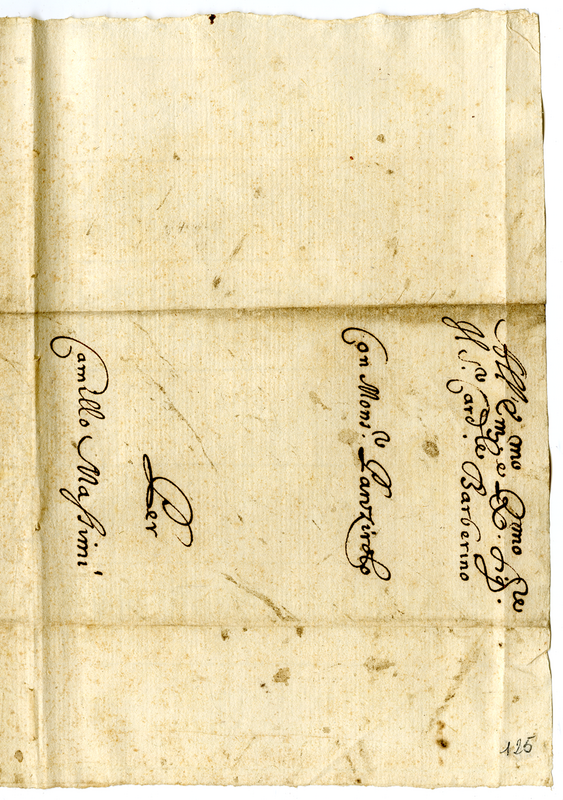 All'E.mo e R.mo Sig.re
Il S.r Card.le Barberino
Con Mons.r Panziroło
Per
Camillo Massimi
125